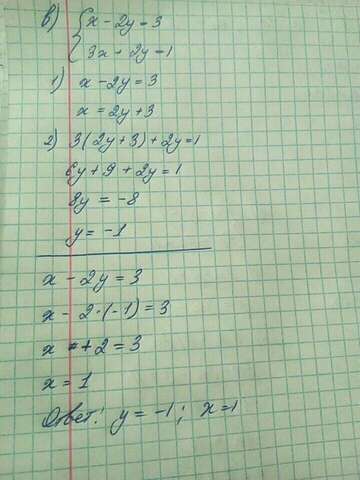 в) { x - 2y = 3
3x + 2y = 1
1) x - 2y = 3
x = 2y + 3
2) 3(2y + 3) + 2y = 1
6y + 9 + 2y = 1
8y = -8
y = -1
x - 2y = 3
x - 2·(-1) = 3
x + 2 = 3
x = 1
Ответ: y = -1; x = 1